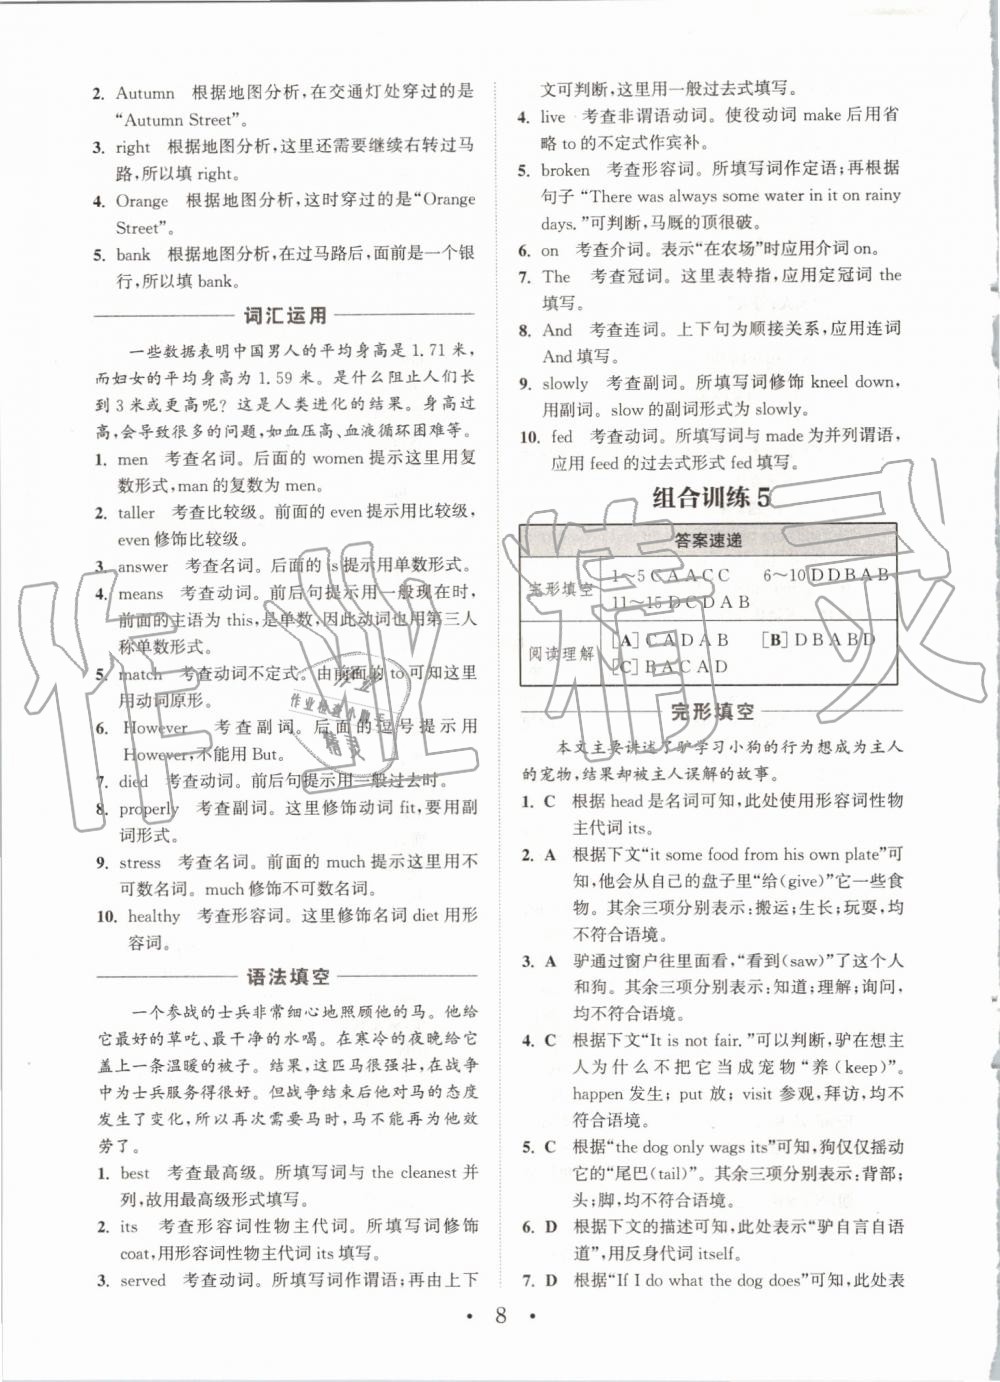 2. Autumn 根据地图分析,在交通灯处穿过的是
“Autumn Street”。
3. right 根据地图分析,这里还需要继续右转过马
路,所以填 right。
4. Orange 根据地图分析,这时穿过的是“Orange
Street”。
5. bank 根据地图分析,在过马路后,面前是一个银
行,所以填 bank。
词汇运用
一些数据表明中国男人的平均身高是 1.71 米,
而妇女的平均身高为 1.59 米。是什么阻止人们长
到 3 米或更高呢?这是人类进化的结果。身高过
高,会导致很多的问题,如血压高、血液循环困难等。
1. men 考查名词。后面的 women 提示这里用复
数形式,man 的复数为 men。
2. taller 考查比较级。前面的 even 提示用比较级,
even 修饰比较级。
3. answer 考查名词。后面的 is 提示用单数形式。
4. means 考查动词。前后句提示用一般现在时,
前面的主语为 this,是单数,因此动词也用第三人
称单数形式。
5. match 考查动词不定式。由前面的 to 可知这里
用动词原形。
6. However 考查副词。后面的逗号提示用
However,不能用 But。
7. died 考查动词。前后句提示用一般过去时。
8. properly 考查副词。这里修饰动词 fit,要用副
词形式。
9. stress 考查名词。前面的 much 提示这里用不
可数名词。much 修饰不可数名词。
10. healthy 考查形容词。这里修饰名词 diet 用形
容词。
语法填空
一个参战的士兵非常细心地照顾他的马。他给
它最好的草吃、最干净的水喝。在寒冷的夜晚给它
盖上一条温暖的被子。结果,这匹马很强壮,在战争
中为士兵服务得很好。但战争结束后他对马的态度
发生了变化,所以再次需要马时,马不能再为他效
劳了。
1. best 考查最高级。所填写词与 the cleanest 并
列,故用最高级形式填写。
2. its 考查形容词性物主代词。所填写词修饰
coat,用形容词性物主代词 its 填写。
3. served 考查动词。所填写词作谓语;再由上下
文可判断,这里用一般过去式填写。
4. live 考查非谓语动词。使役动词 make 后用省
略 to 的不定式作宾补。
5. broken 考查形容词。所填写词作定语;再根据
句子“There was always some water in it on rainy
days.”可判断,马厩的顶很破。
6. on 考查介词。表示“在农场”时应用介词 on。
7. The 考查冠词。这里表特指,应用定冠词 the
填写。
8. And 考查连词。上下句为顺接关系,应用连词
And 填写。
9. slowly 考查副词。所填写词修饰 kneel down,
用副词。slow 的副词形式为 slowly。
10. fed 考查动词。所填写词与 made 为并列谓语,
应用 feed 的过去式形式 fed 填写。
组合训练 5
答案速递
完形填空 1~5 C A A C C 6~10 D D B A B
11~15 D C D A B
阅读理解 [A] C A D A B [B] D B A B D
[C] B A C A D
完形填空
本文主要讲述了驴学习小狗的行为想成为主人
的宠物,结果却被主人误解的故事。
1. C 根据 head 是名词可知,此处使用形容词性物
主代词 its。
2. A 根据下文“it some food from his own plate”可
知,他会从自己的盘子里“给(give)”它一些食
物。其余三项分别表示:搬运;生长;玩耍,均
不符合语境。
3. A 驴通过窗户往里面看,“看到(saw)”了这个人
和狗。其余三项分别表示:知道;理解;询问,
均不符合语境。
4. C 根据下文“It is not fair.”可以判断,驴在想主
人为什么不把它当成宠物“养(keep)”。
happen 发生;put 放;visit 参观,拜访,均不
符合语境。
5. C 根据“the dog only wags its”可知,狗仅仅摇动
它的“尾巴(tail)”。其余三项分别表示:背部;
头;脚,均不符合语境。
6. D 根据下文的描述可知,此处表示“驴自言自语
道”,用反身代词 itself。
7. D 根据“If I do what the dog does”可知,此处表
• 8 •
作业精灵
作业检查小助手
精灵